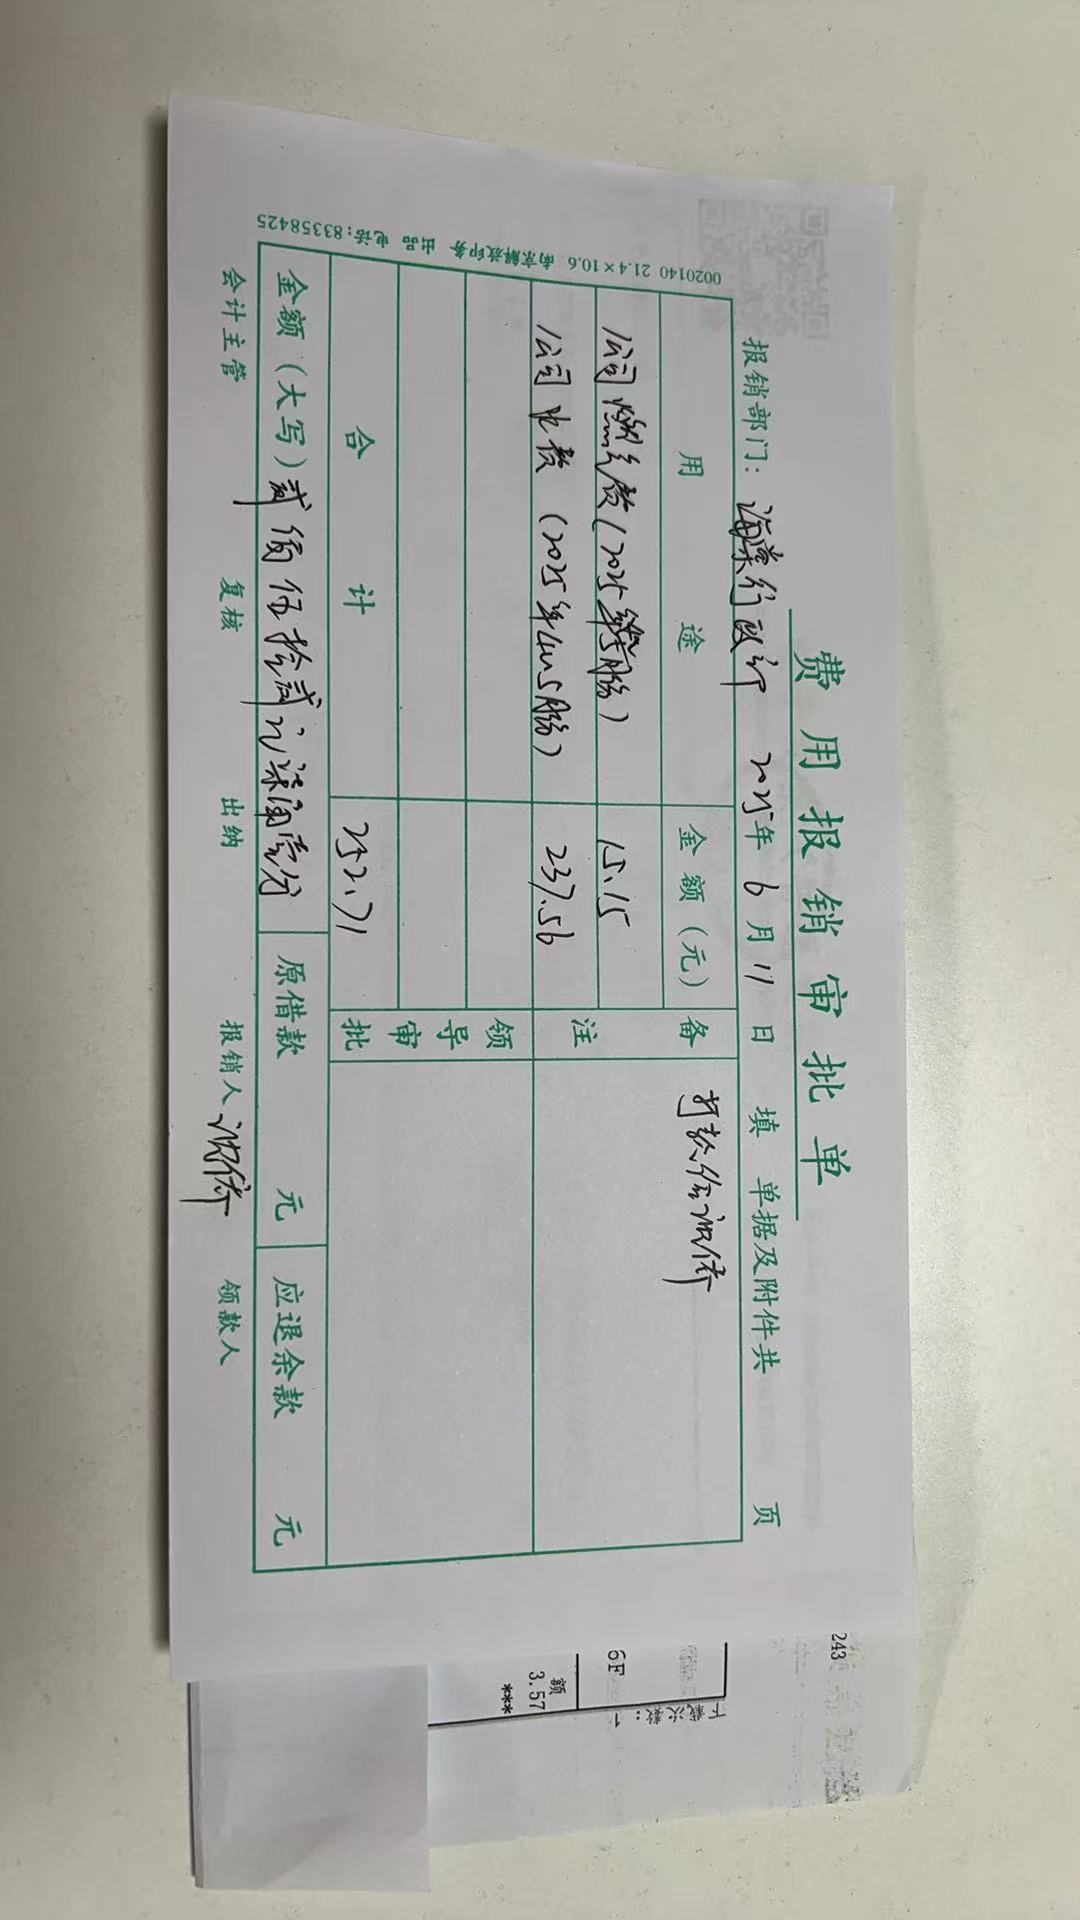 费用报销审批单
报销部门：海棠行政部 2025年6月11日填 单据及附件共 页
用途 金额（元） 备注 打款给
公司燃气费（2025年5月份） 15.15
公司水费（2025年4~5月份） 237.56
领导审批
合计 252.71
金额（大写）贰佰伍拾贰元柒角壹分 原借款 元 应退余款 元
会计主管 复核 出纳 报销人 领款人
0020140 21.4×10.6 南京解放印务 出品 电话:83358425
243
下载次数：1
6F
额
3.57
***